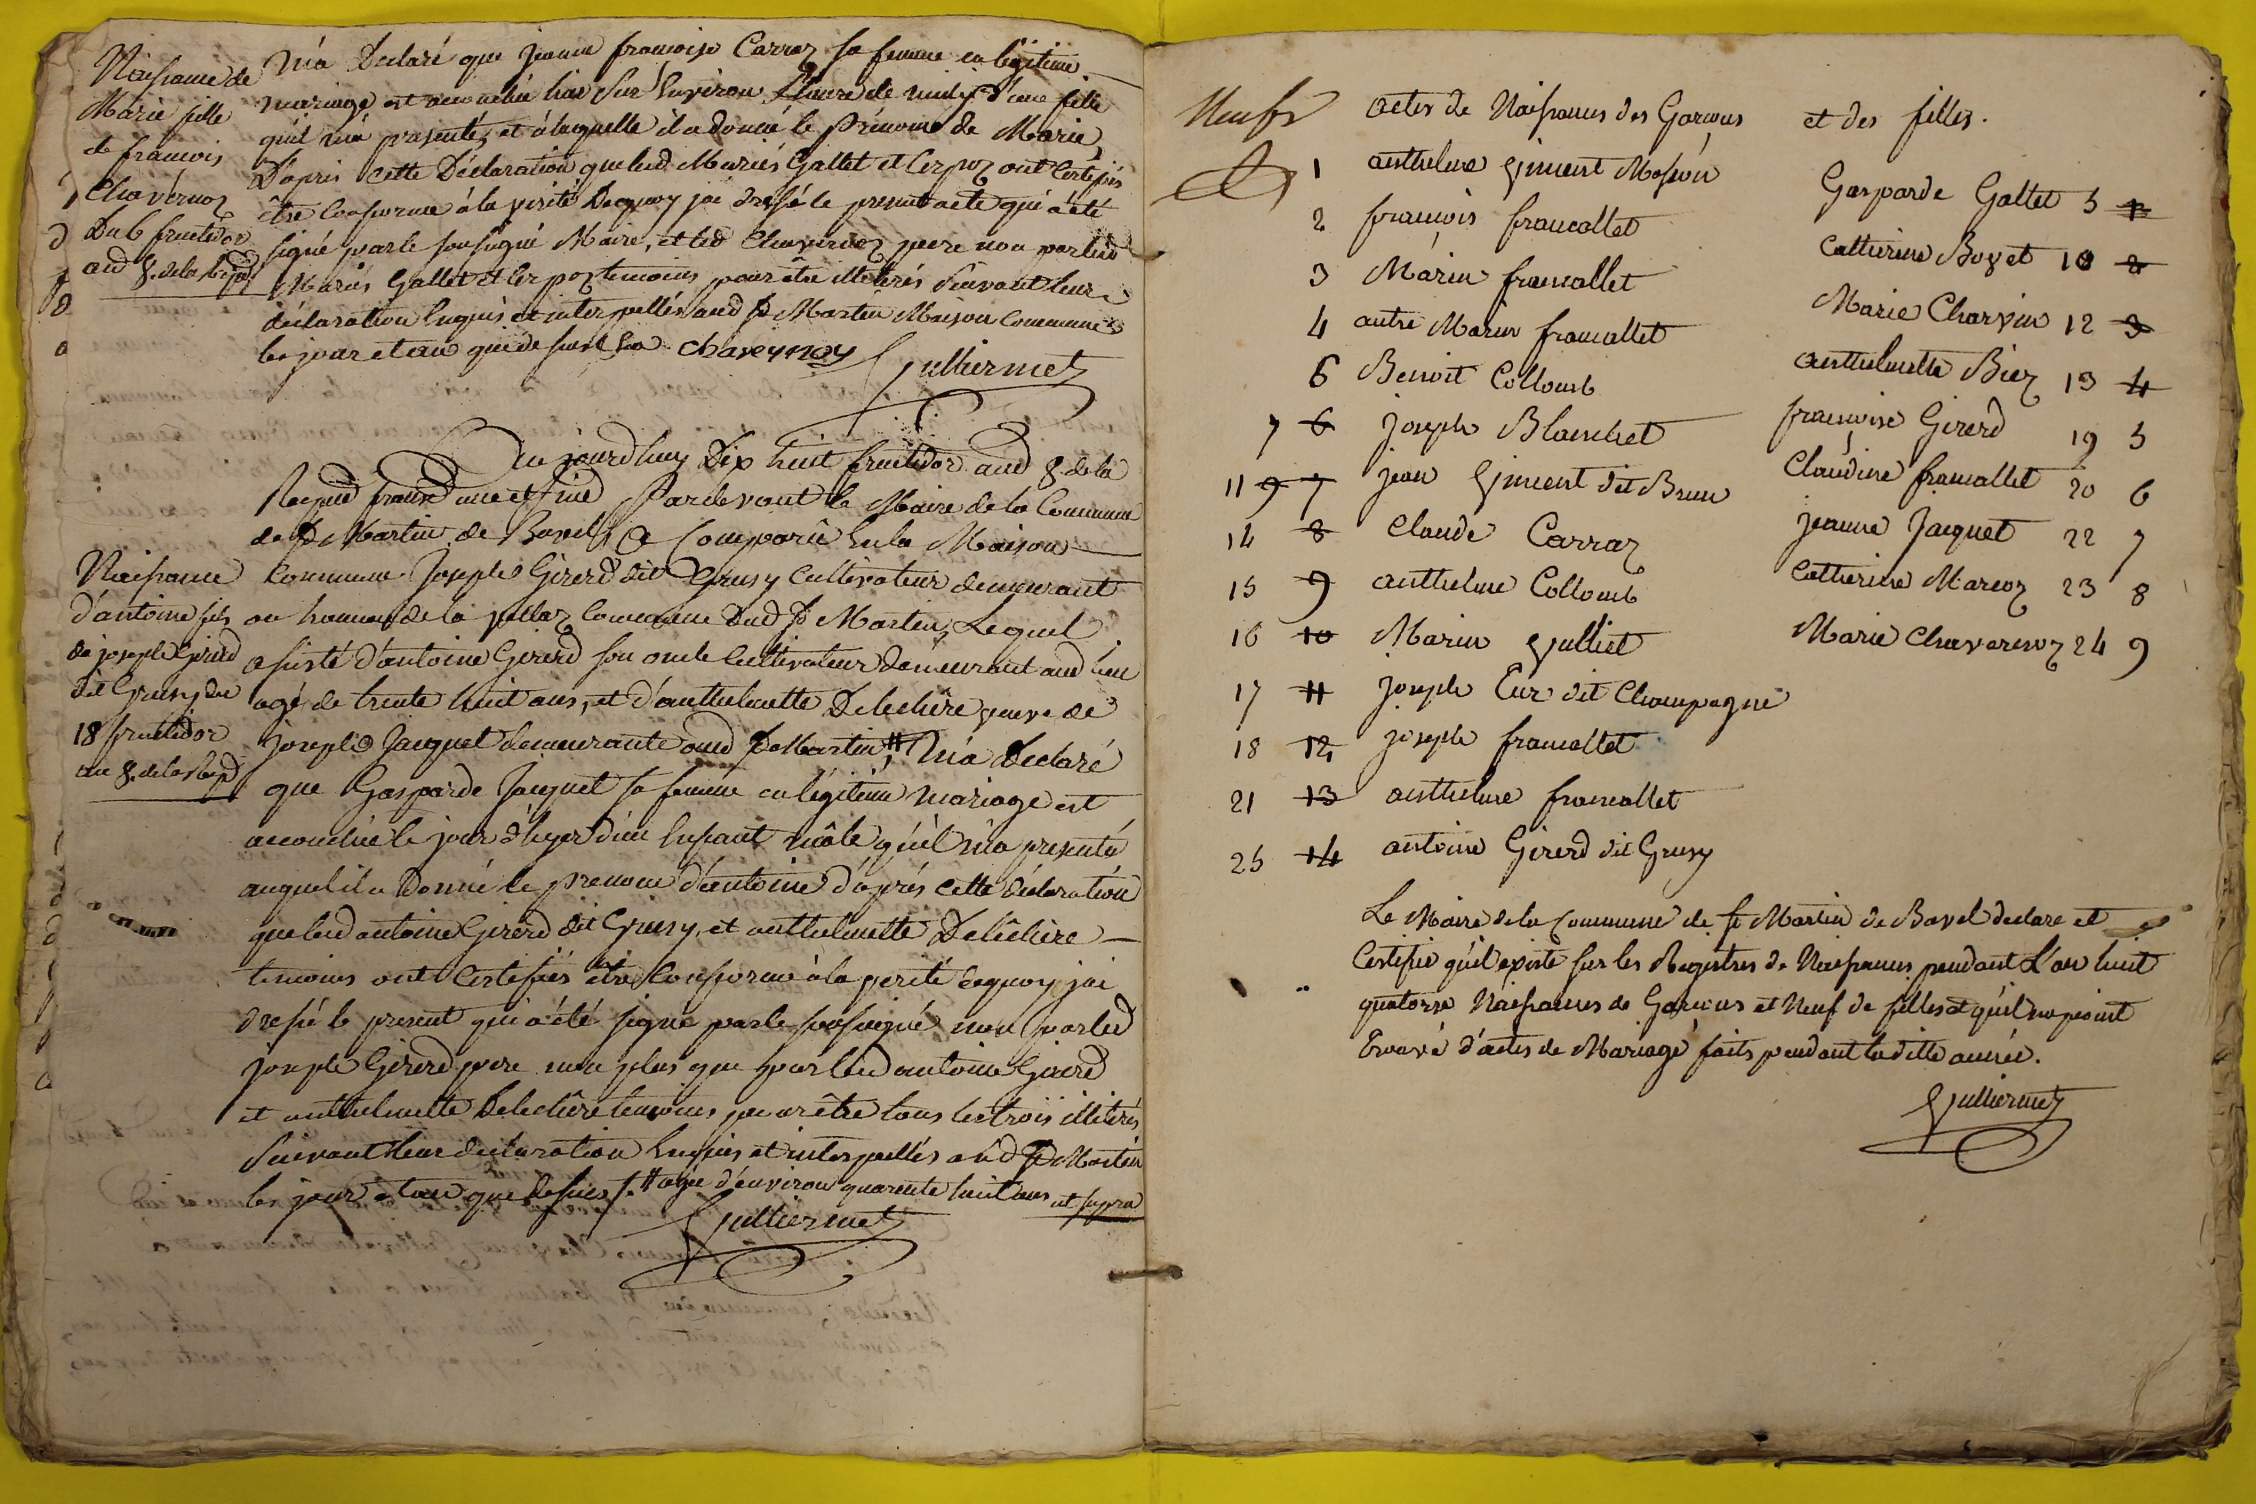 Naissance de
Marie fille
de francois
Chavernoz
Du 6 fructidor
and 8. de la Repd
m'a Declaré que jeanne francoise Carraz sa femme en légitime
mariage est accouchée hier sur l'environ l'heure de midy d'une fille
qu'il m'a presentée, et à laquelle il a donné le Prénome de Marie,
D'apris cette Déclaration que lesd Mariés Gallet et Cerpoz ont Certifiés
être Conforme à la vérité Dequoy jai dressé le present acte qui a été
signé par le soussigné Maire, et led Chavernoz pere non par lesd
Mariés Gallet et Cerpoz temoins pour être illiterés suivant leur
déclaration Enquis et interpellés aud St Martin Maison Commune
les jour et an que dessus
chaveynoy
Gulliermet
Aujourdhuy Dix huit fructidor and 8. de la
Repud francd une et Jnd Pardevant le Maire de la Commune
de St Martin de Bavel, a Comparû En la Maison
Commune Joseph Girerd dit Grusy Cultivateur demeurant
au hameau de la Vellaz Commune Dud St Martin, Lequel
assisté d'antoine Girerd son oncle Cultivateur demeurant aud lieu
agé de trente huit ans, et d'anthelmette Delechère veuve de
Joseph Jacquet demeurante aud St Martin,# M'a declaré
que Gasparde Jacquet sa femme en légitime mariage est
accouchée le jour d'hyer d'un Enfant mâle qu'il m'a presenté
auquel il a Donné le prenome d'antoine d'aprés cette déclaration
que led antoine Girerd dit Grusy, et anthelmette Deléchère
temoins ont Certifiés être Conforme à la verité dequoy jai
dressé le present qui a été signé par le soussigné non par led
joseph Girerd pere non plus que par led antoine Girerd
et anthelmette Delechère temoins pour être tous les trois illiterés
Suivant leur declaration Enquis et interpellés aud St Martin
les jour et an que dessus /. # agée d'environ quarente huit ans ut supra
Gulliermet
Naissance
d'antoine fils
de joseph Girerd
dit Grusy du
18 fructidor
an 8. de la Repd
Neufs actes de Naissances des Garçons et des filles.
1 anthelme Vincent Masson
2 francois francallet
3 Marin francallet
4 autre Marin francallet
6 Benoit Collomb
7 6 joseph Blanchet
11 9 7 jean Vincent dit Brun
14 8 Claude Carraz
15 9 anthelme Collomb
16 10 Marin Vulliet
17 11 joseph Eur dit Champagne
18 12 joseph francallet
21 13 anthelme francallet
25 14 antoine Girerd dit Grusy
Gasparde Gallet 5 1
Catherine Bovet 10 2
Marie Charvin 12 3
anthelmette Biez 13 4
francoise Girerd 19 5
Claudine francallet 20 6
jeanne Jacquet 22 7
Catherine Marcoz 23 8
Marie Chavernoz 24 9
Le Maire de la Commune de St Martin de Bavel declare et
Certifie qu'il existe sur les Registres de Naissances pendant L'an huit
quatorze Naissances de Garçons et Neuf de filles et qu'il n'a point
Trouvé d'actes de Mariage faits pendant ladite année.
Gulliermet